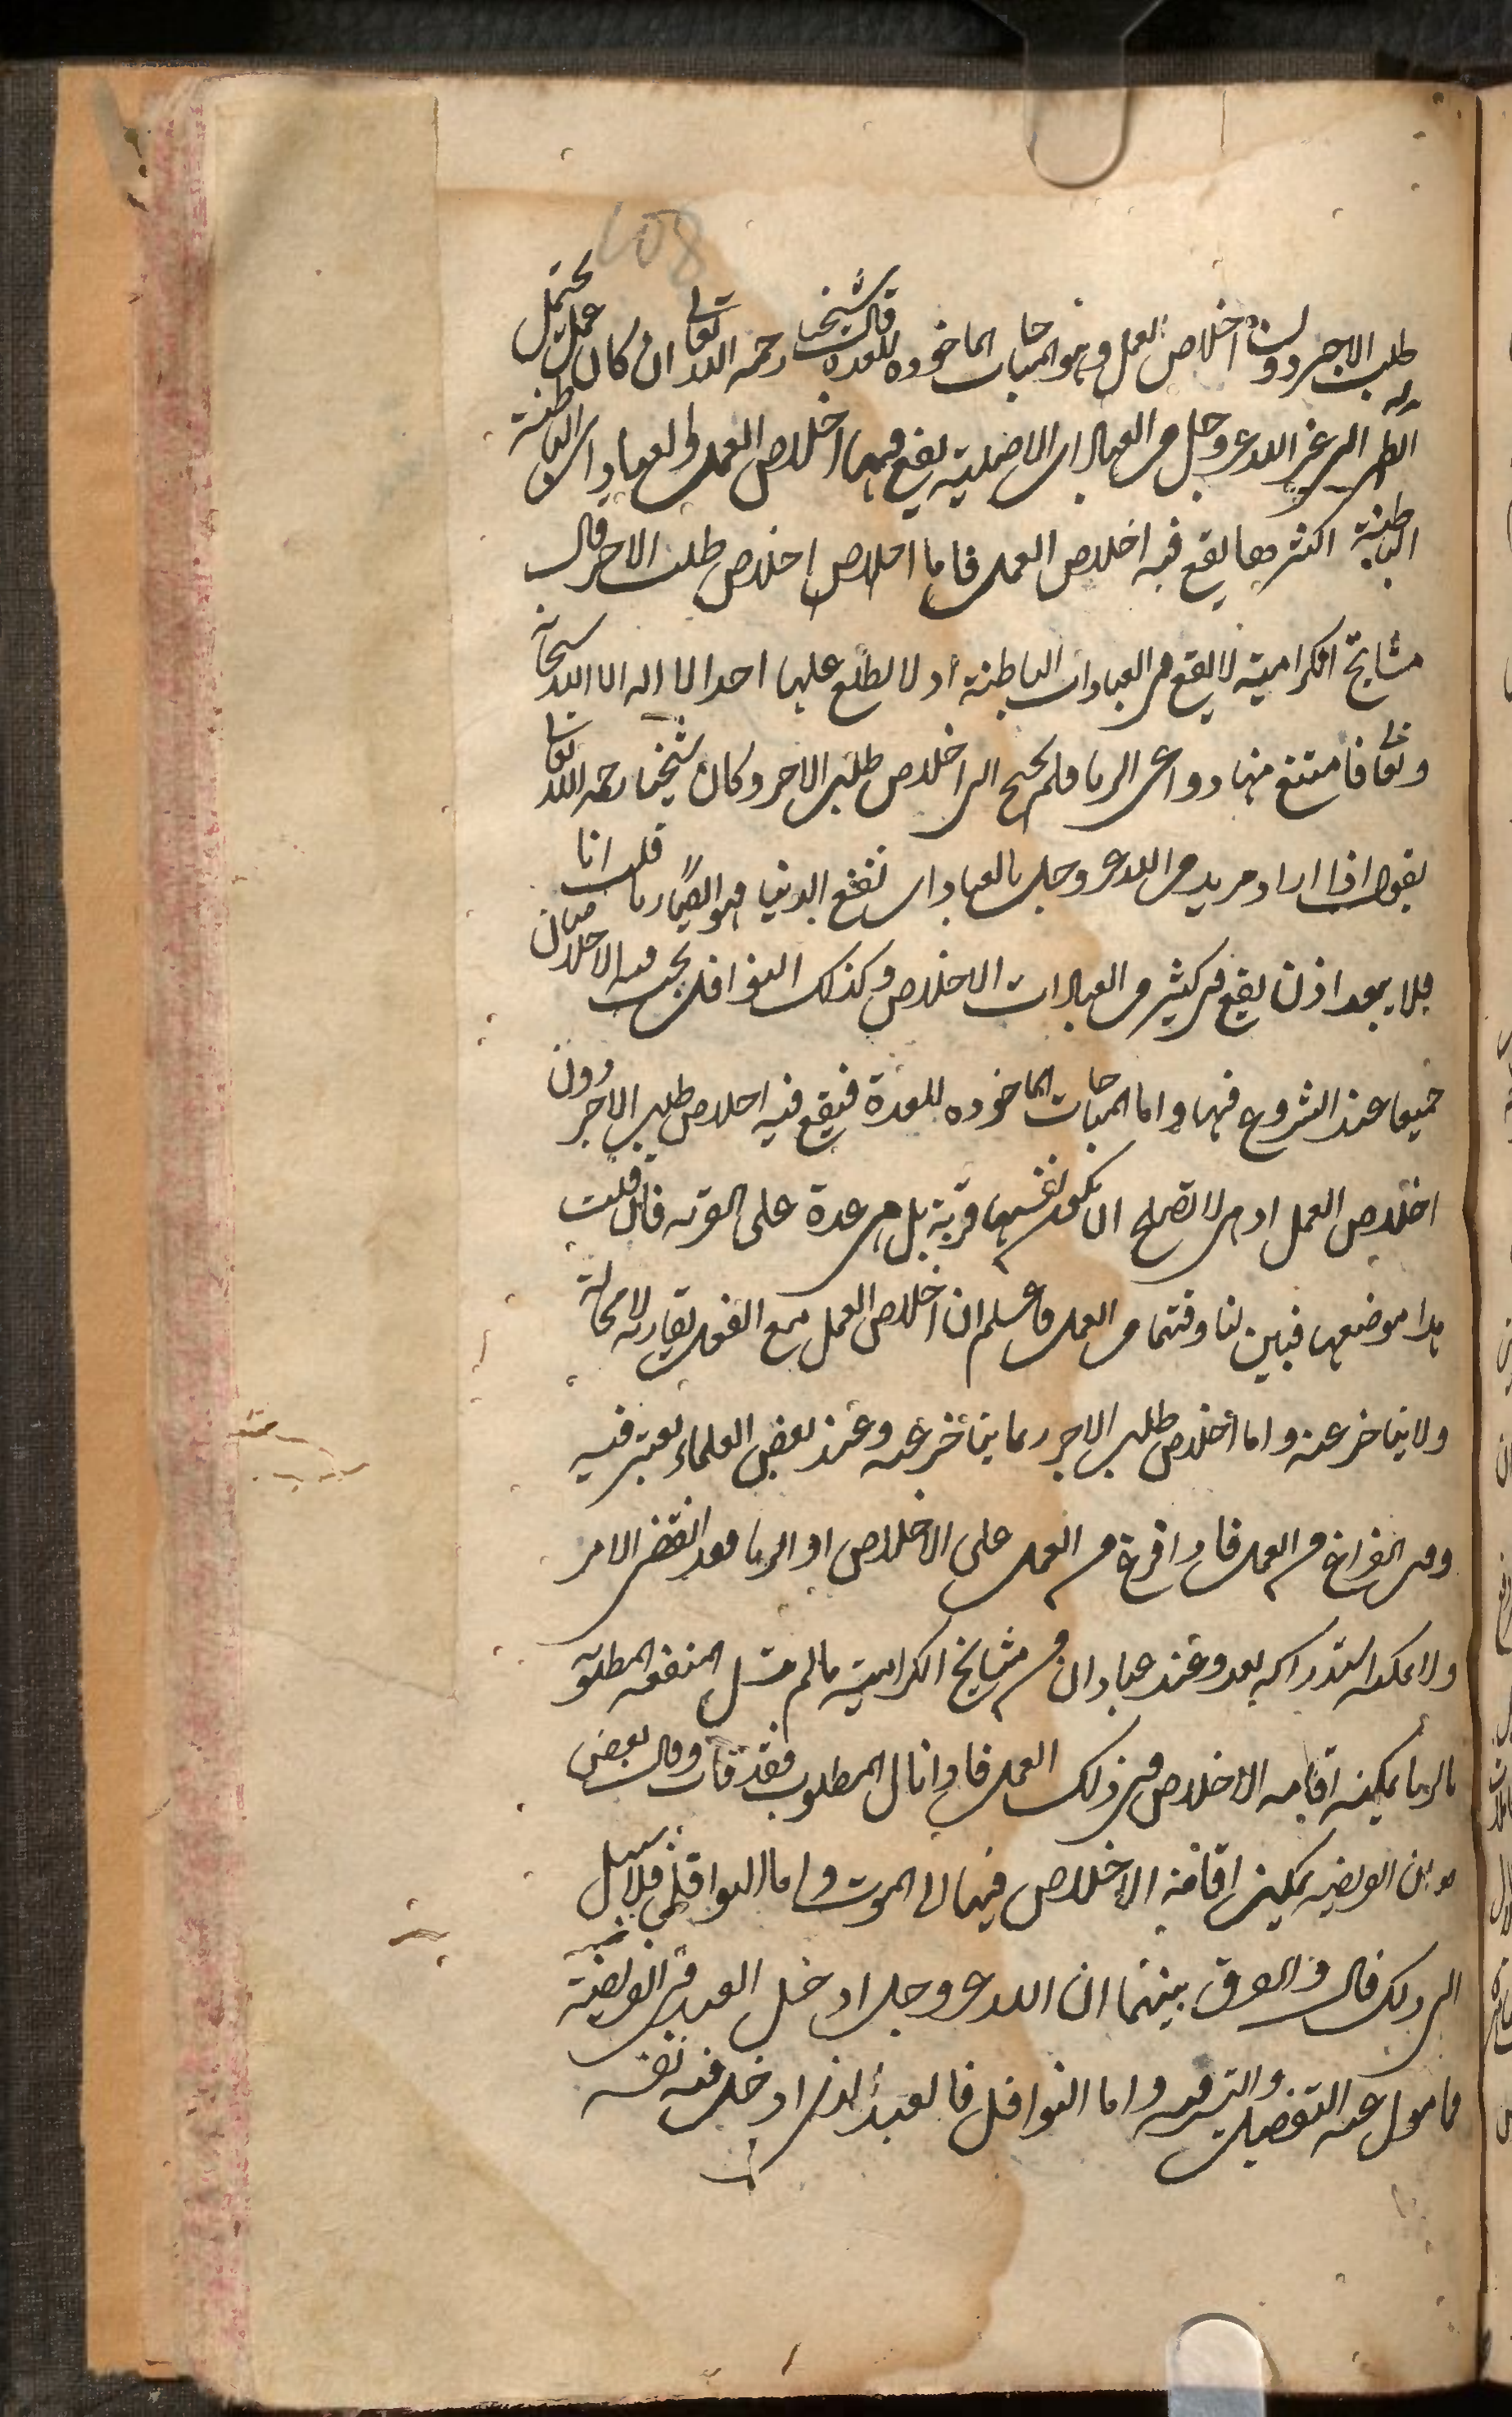 108
طلب الاجر دون اخلاص العمل وهو المباحات الماخوذه للعدة قال شيخنا رحمه الله تعالى ان كان عمل يحتمل
ان يراد به الى غير الله عز وجل من العبادات الاصلية يقع فيها اخلاص العمل والعبادات الباطنة
الباطنة اكثرها يقع فيه اخلاص العمل فاما اخلاص اخلاص طلب الاجر قال
مشايخ الكرامية لا يقع في العبادات الباطنة اد لا يطلع عليها احد الا اله الا الله سبحانه
وتعا فامتنع منها دواعى الريا فلم يحتج الى اخلاص طلب الاجر وكان شيخنا رحمه الله تعالى
يقول اذا اراد مريد من الله عز وجل بالعبادات نفع الدنيا فهو ايضًا ريا قلت انا
فلا يبعد اذن يقع في كثير من العبادات الاخلاص وكذلك النوافل يجب فيه الاخلاصان
جميعا عند الشروع فيها واما المباحات الماخوذه للعدة فيقع فيه اخلاص طلب الاجر دون
اخلاص العمل اد هى لا تصلح ان تكون بنفسها قربة بل هى عدة على القربه فان قلت
هذا موضعها فبين لنا وقتهما من العمل فاعلم ان اخلاص العمل مع الفعل يقارنه لا محالة
ولا يتاخر عنه واما اخلاص طلب الاجر ربما يتاخر عنه وعند بعض العلماء يعتبر فيه
وقت الفراغ من العمل فاذا فرغ من العمل على الاخلاص او الريا فقد انقضى الامر
ولا يمكنه استدراكه بعد وعند عباد ان من مشايخ الكرامية ما لم ينل المنفعه المطلوبة
بالريا يمكنه اقامه الاخلاص في ذلك العمل فاذا نال المطلوب فقد فات وقال بعض
هو بان الفريضه يمكنه اقامة الاخلاص فيها الى الموت واما النوافل فلا سبيل
الى ذلك قال والفرق بينهما ان الله عز وجل ادخل العبد في الفريضة
فمامول عنه التفضل والترفه واما النوافل فالعبد الذى ادخل فيه نفسه